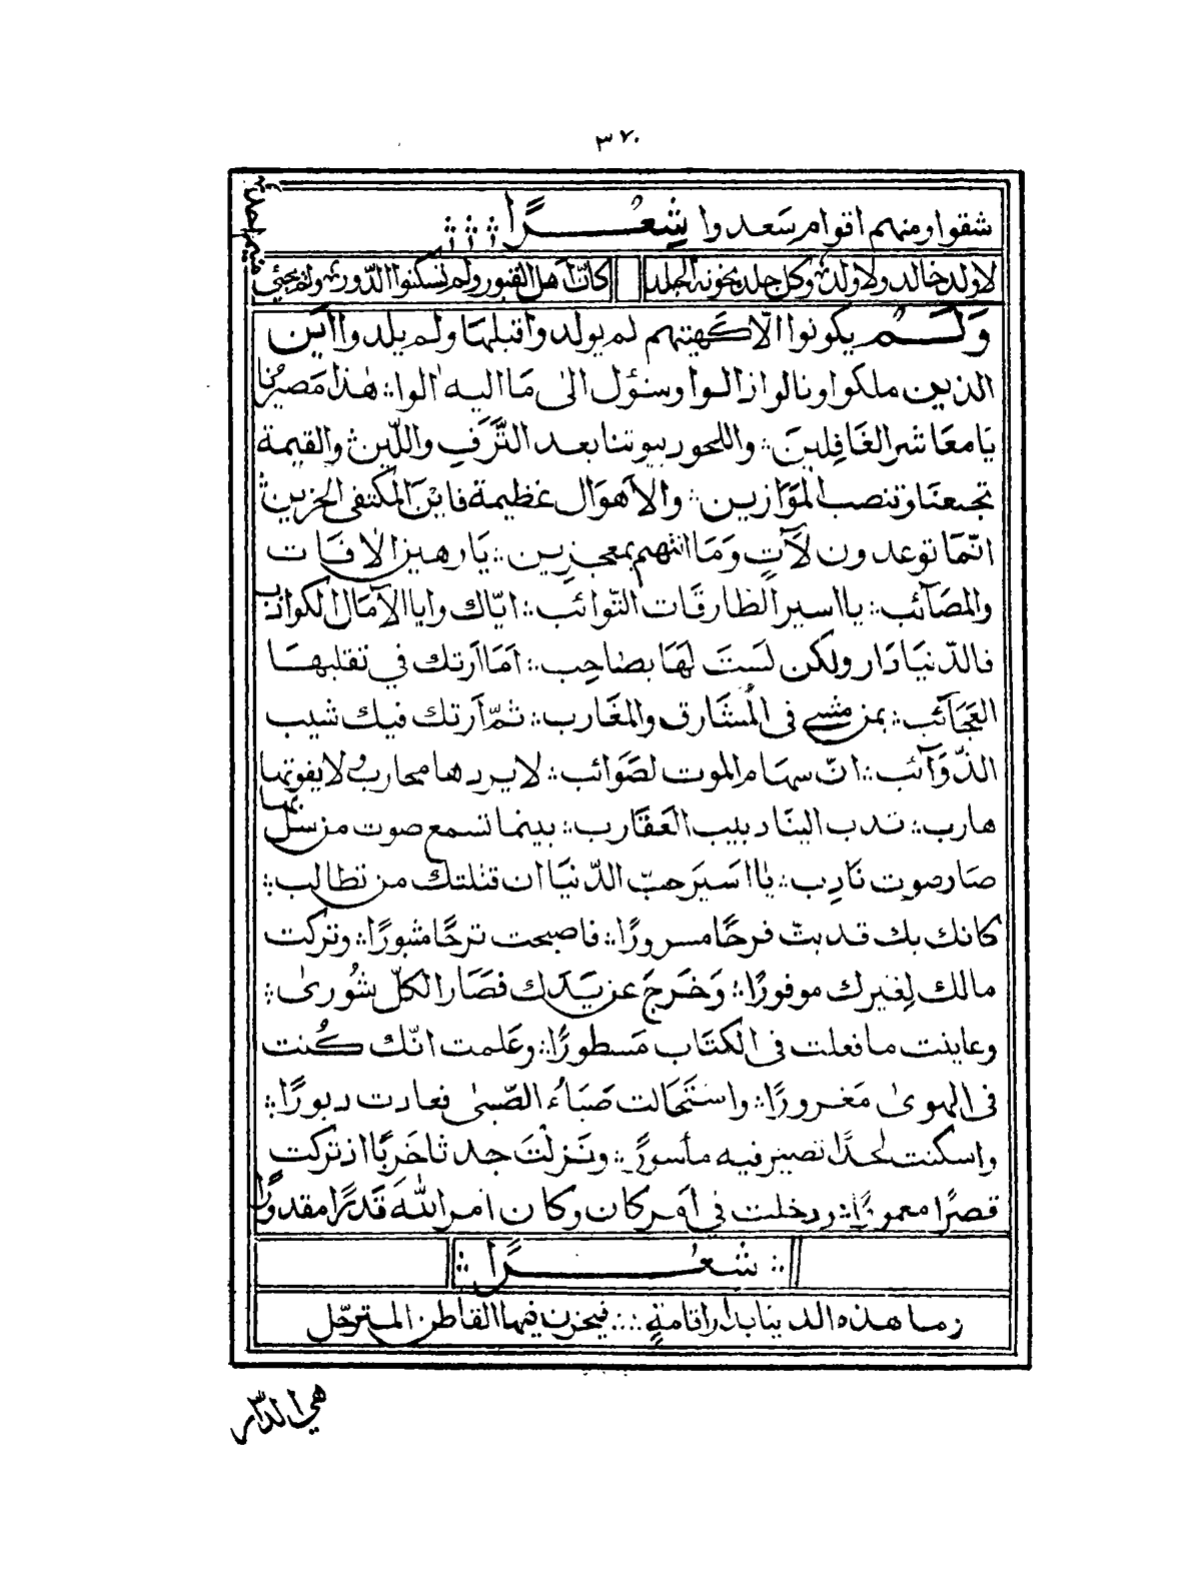 ٣٧٠
شقوا ومنهم اقوام سَعدوا شِعْرًا
لا والد خالد ولا ولد وكل جلد يخونه الجلد كانّ اهل القبور ولم تسكنوا الدّور ولم يجئ
وَلَــم يكونوا الّا كَهيئتهم لم يولدوا قبلها ولم يلدوا اَين
الذين ملكوا ونالوا زالوا وسنؤل الىٰ مَا اليه اٰلوا هٰذا مَصيرُنا
يَا معَاشر الغَافِلينَ واللحود بيوتنا بعد التَّرَفِ واللّين والقيمة
تجمعنَا وتنصب المَوَازين والاَهوَال عَظيمة فاَيْنَ المُكتفى الحزين
انّمَا توعدون لَآتٍ وَمَا انتهم بمعجِزين يَا رهين الاٰفَات
والمصَآئب يا اسير الطارقَات النّوائب ايّاك وايا الآمَال الكواذب
فالدّنيَا دَار ولكن لَستَ لهَا بصَاحِب اَمَا اَرتك في تقلبهَا
العَجَآئب بمن مشىٰ فى المَشَارق والمغَارب ثمّ اَرتك فيك شيب
الذّوَآئب انّ سهَام الموت لصَوَائب لا يردها محارب ولا يفوتها
هارب تدب الينَا دبيب العَقَارب بينما تسمع صوت من سلّ بها
صَار صوت نَادِب يا اسَيرَ حبّ الدّنيَا ان قتلتك من تطالب
كانك بك قد بتّ فرحًا مسرورًا فاصبحت ترحًا مثبورًا وتركت
مالك لِغيرك موفورًا وَخَرجَ عن يَدِك فصَار الكلّ شُورىٰ
وعاينت ما فعلت فى الكتَاب مَسطورًا وعَلمت انّك كُنت
فى الهوىٰ مَغرورًا واستَحَالت صَبَاءُ الصّبىٰ فعادت دبورًا
واسكنت لحدًا تصير فيه مأسورًا ونَزلْتَ جدثا خَربًا اذ تركت
قصرًا معمورًا ودخلت في اَمَر كان وكَان امر اللهَ قَدَرًا مقدورًا
شعْـــرًا
وما هذه الدنيا بدار اقامةٍ فيحزن فيها القاطن المترحّل
هي الدّار